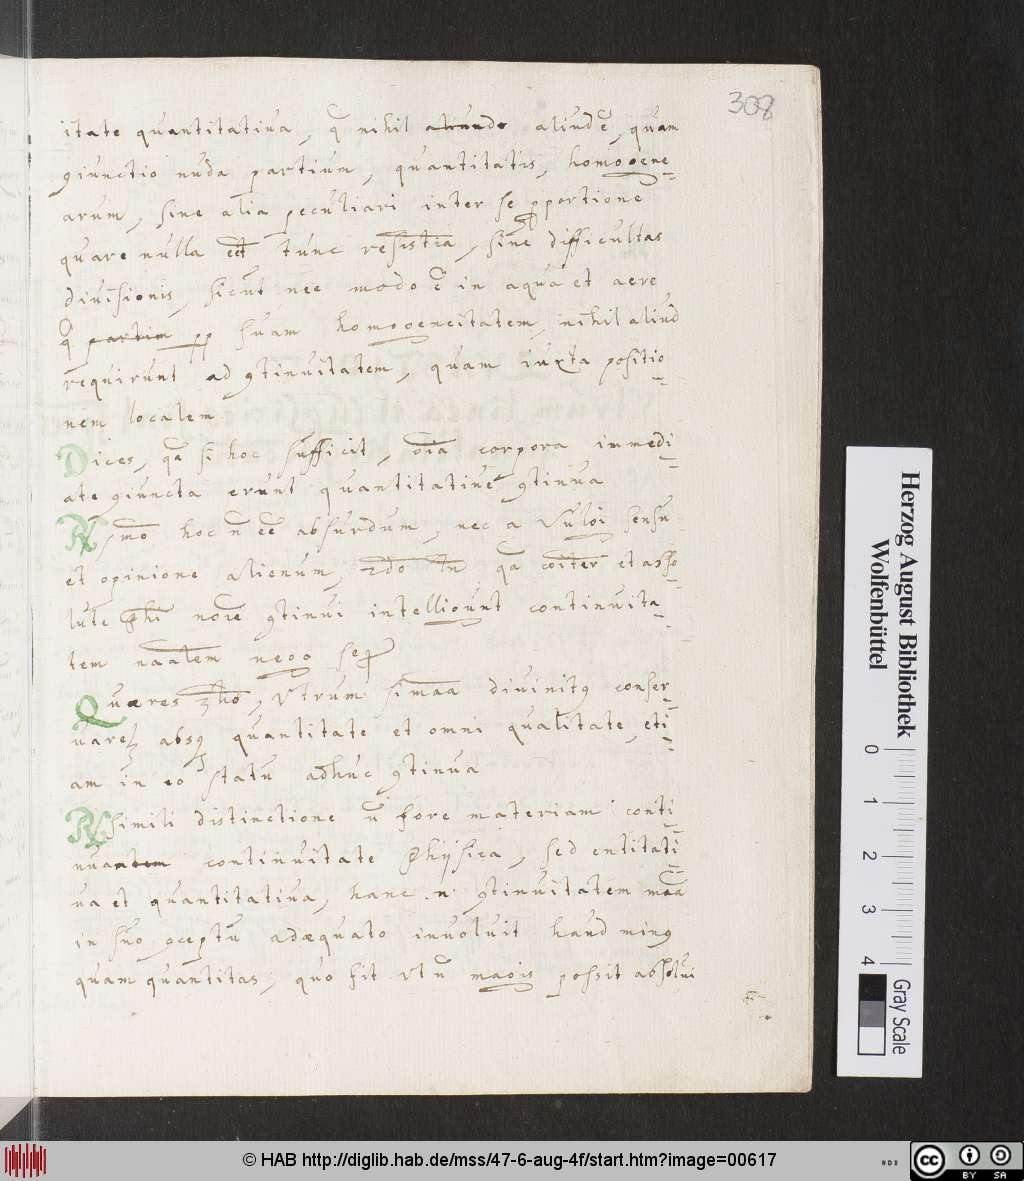 308
itate quantitativa, q̃ nihil aliunde aliud ẽ, quam
ꝯiunctio nuda partium, quantitatis, homogene-
arum, sine alia peculiari inter se ꝓportione
quare nulla eẽt tunc resistĩa, sine difficultas
divisionis, sicut nec modo ẽ in aqua et aere
q̃ partim ꝓꝑ suam homogeneitatem, nihil aliud
requirunt ad ꝯtinuitatem, quam iuxta positio-
nem localem
Dices, qã si hoc sufficit, oĩa corpora immedi-
ate ꝯiuncta erunt quantitative ꝯtinua
R. pmõ hoc ñ eẽ absurdum, nec a vulgi sensu
et opinione alienum, 2do tñ qã coĩter et asso-
lute phĩ noĩe ꝯtinui intelligunt continuita-
tem naãlem nego seq̃
Quæres 3ho, Vtrum sĩ maã divinitꝯ conser-
varet absqꝫ quantitate et omni qualitate, eti-
am in eo statu adhuc ꝯtinua
R. simili distinctione ũ fore materiam conti-
nua continuitate Physica, sed entitati-
va et quantitativa, hanc .n. ꝯtinuitatem maã
in suo ꝯceptu adæquato involvit haud minꝯ
quam quantitas, quo fit vt ũ magis possit absolui
Herzog August Bibliothek
Wolfenbüttel
0 1 2 3 4
Gray Scale
© HAB http://diglib.hab.de/mss/47-6-aug-4f/start.htm?image=00617
cc BY SA